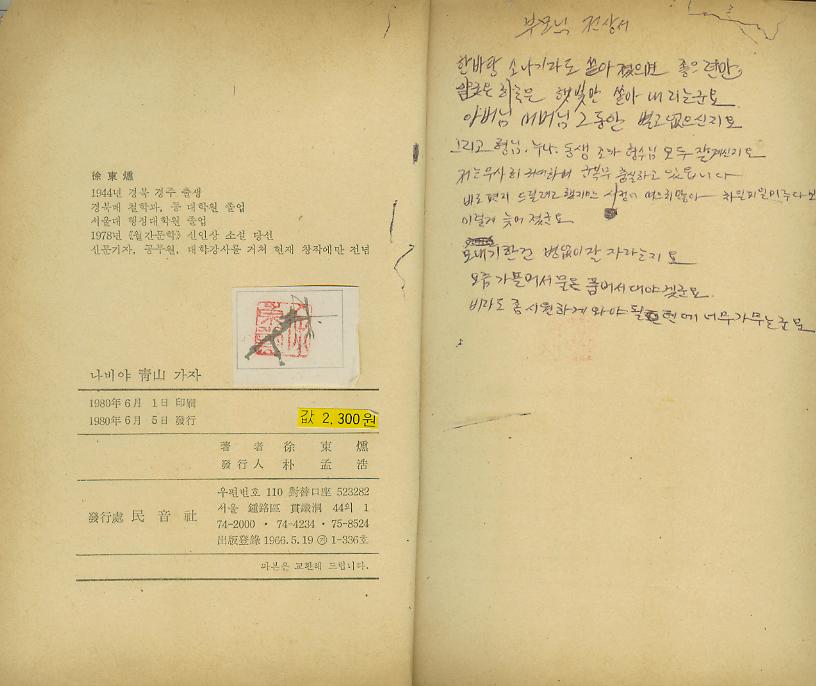 徐東燻
1944년 경북 경주 출생
경북대 철학과, 동 대학원 졸업
서울대 행정대학원 졸업
1978년 《월간문학》 신인상 소설 당선
신문기자, 공무원, 대학강사를 거쳐 현재 창작에만 전념
나비야 靑山 가자
1980年 6月 1日 印刷
1980年 6月 5日 發行
값 2,300원
著者 徐東燻
發行人 朴孟浩
發行處 民音社
우편번호 110 對替口座 523282
서울 鍾路區 貫鐵洞 44의 1
74-2000 · 74-4234 · 75-8524
出版登錄 1966.5.19 ㉮ 1-336호
파본은 교환해 드립니다.
부모님 전상서
한바탕 소나기라도 쏟아 졌으면 좋으련만
햇빛만 쏟아 내리는군요
아버님 어머님 그동안 별고 없으신지요
그리고 형님, 누나, 동생 조카 형수님 모두 잘계신지요
저는 무사히 귀대하여 군복무 충실하고 있읍니다
바로 편지 드릴려고 했지만 시간이
이렇게 늦어 졌군요
모내기한건 병없이 잘 자라는지요
요즘 가물어서 물을 품어서 대야겠군요
비라도 좀 시원하게 와야 될텐데 너무 가무는군요